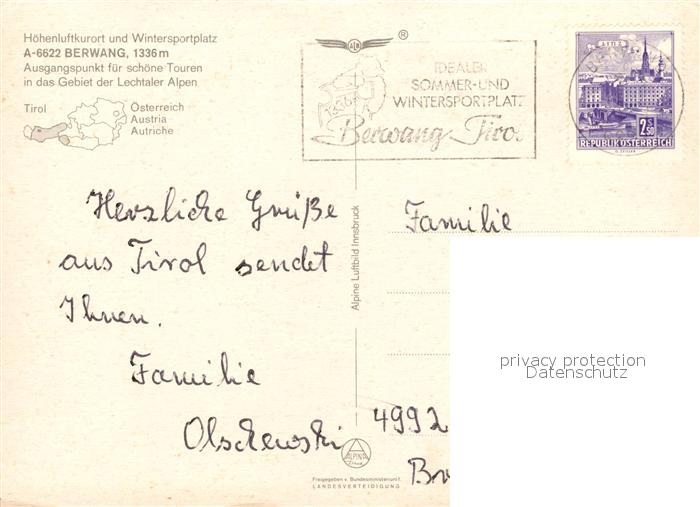 Höhenluftkurort und Wintersportplatz
A-6622 BERWANG, 1336 m
Ausgangspunkt für schöne Touren
in das Gebiet der Lechtaler Alpen
Tirol
Österreich
Austria
Autriche
ALB
®
IDEALER
SOMMER-UND
WINTERSPORTPLATZ
Berwang Tirol
2.50
REPUBLIK ÖSTERREICH
Herzliche Grüße
aus Tirol sendet
Ihnen.
Familie
Olschewski
Alpine Luftbild Innsbruck
Familie
4992
privacy protection
Datenschutz
ALPINA
Freigegeben v. Bundesministerium f.
LANDESVERTEIDIGUNG